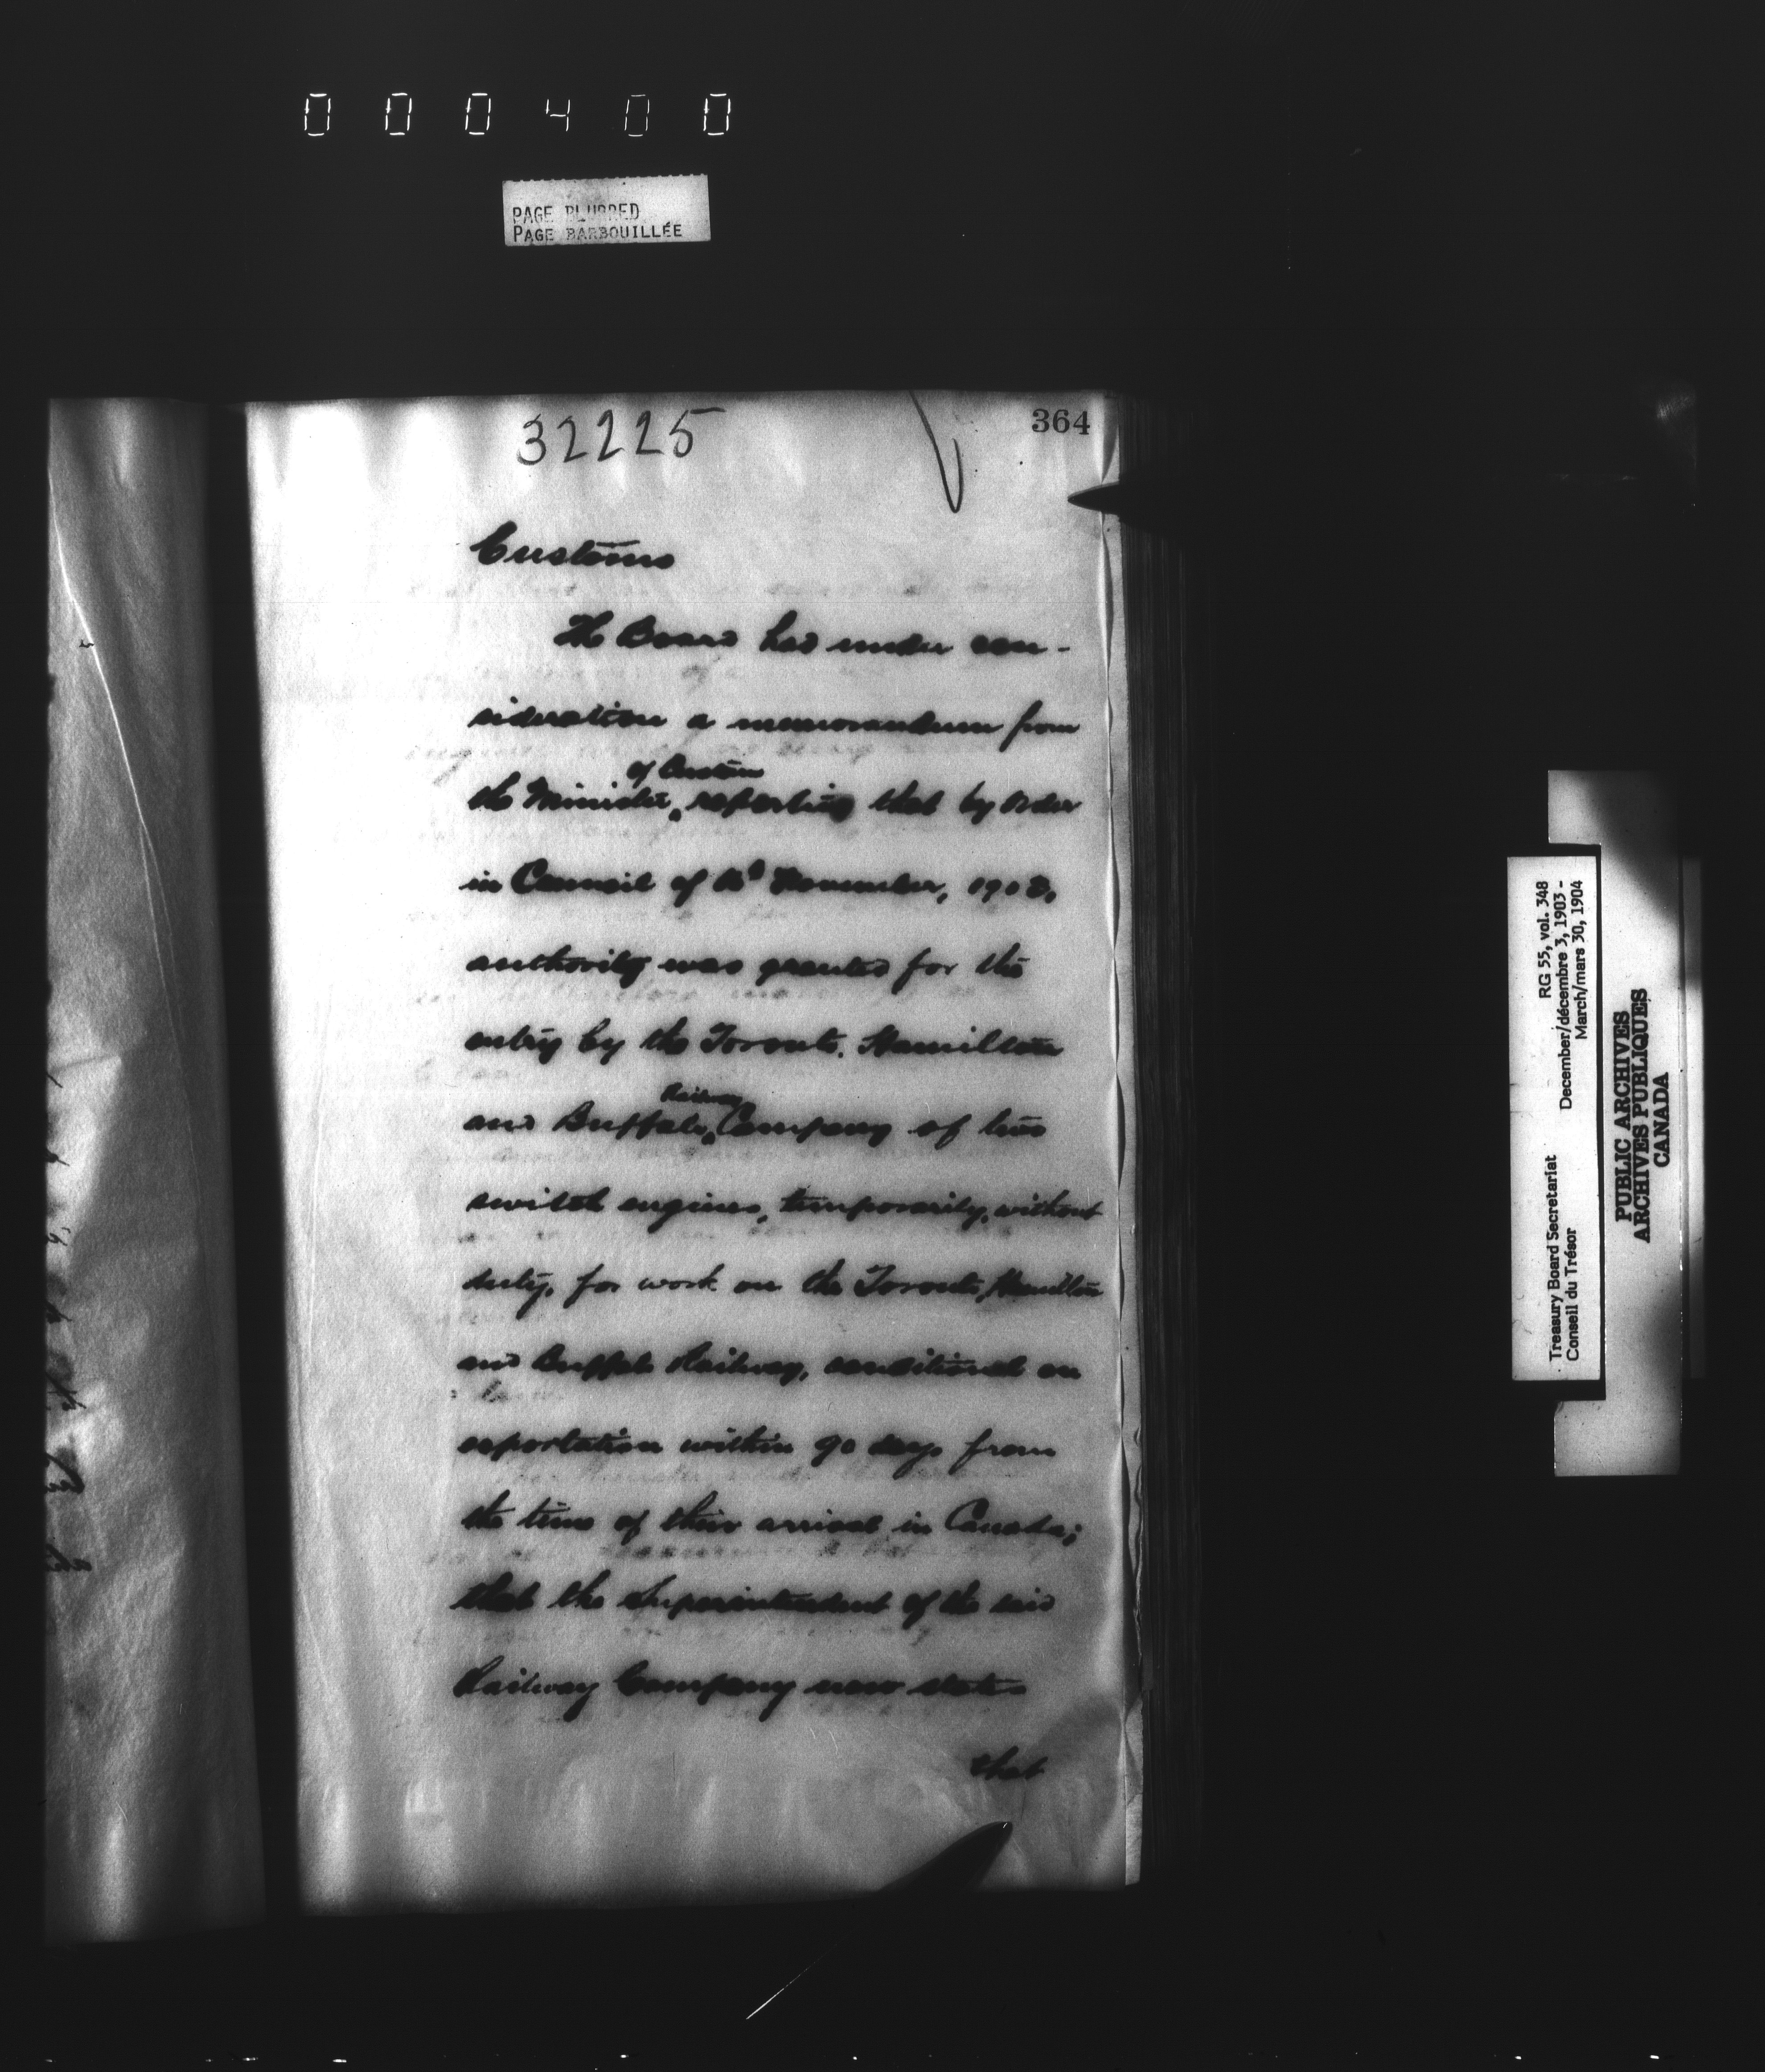 000400
PAGE BLURRED
PAGE BARBOUILLÉE
32225
364
Customs
The Board had under con-
sideration a memorandum from
of Customs
the Minister reporting that by Order
in Council of November, 1903,
authority was granted for the
entry by the Toronto, Hamilton
Railway
and Buffalo Company of two
switch engines, temporarily, without
duty, for work on the Toronto, Hamilton
and Buffalo Railway, conditional on
exportation within 90 days from
the time of their arrival in Canada;
that the Superintendent of the said
Railway Company now states
that
Treasury Board Secretariat RG 55, vol. 348
Conseil du Trésor December/décembre 3, 1903 -
March/mars 30, 1904
PUBLIC ARCHIVES
ARCHIVES PUBLIQUES
CANADA